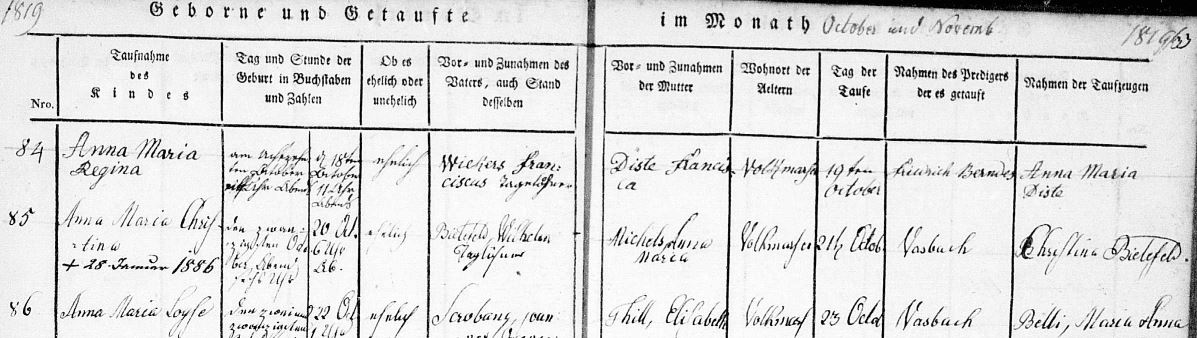 1819
Geborne und Getaufte
im Monath October und Novemb
1819
33
Nro.
Taufnahme
des
Kindes
Tag und Stunde der
Geburt in Buchstaben
und Zahlen
Ob es
ehelich oder
unehelich
Vor- und Zunahmen des
Vaters, auch Stand
desselben
Vor- und Zunahmen
der Mutter
Wohnort der
Aeltern
Tag der
Taufe
Nahmen des Predigers
der es getauft
Nahmen der Taufzeugen
84
Anna Maria
Regina
am Achtzehn
ten October
eilf Uhr Abends
d. 18ten
October
11 Uhr
Abends
ehelich
Wiekers Fran-
ciscus Tagelöhner
Diste Francis
ca
Volkmarsen
19ten
October
Friedrich Berndes
Anna Maria
Diste
85
Anna Maria Chris-
tina
+ 28 Januar 1886
den zwan-
zigsten Octo
ber, Abend
sechs Uhr
20 Oct.
6 Uhr
Ab.
ehelich
Wilhelm
Taglöhner
Michels Anna
Maria
Volkmarsen
21t Octob
Vasbach
Christina Bielefeld.
86
Anna Maria Loyse
den zwei und
zwanzigsten
22 Oct
1 Uhr
ehelich
Thill, Elisabeth
Volkmars
23 Octob
Vasbach
Belli, Maria Anna